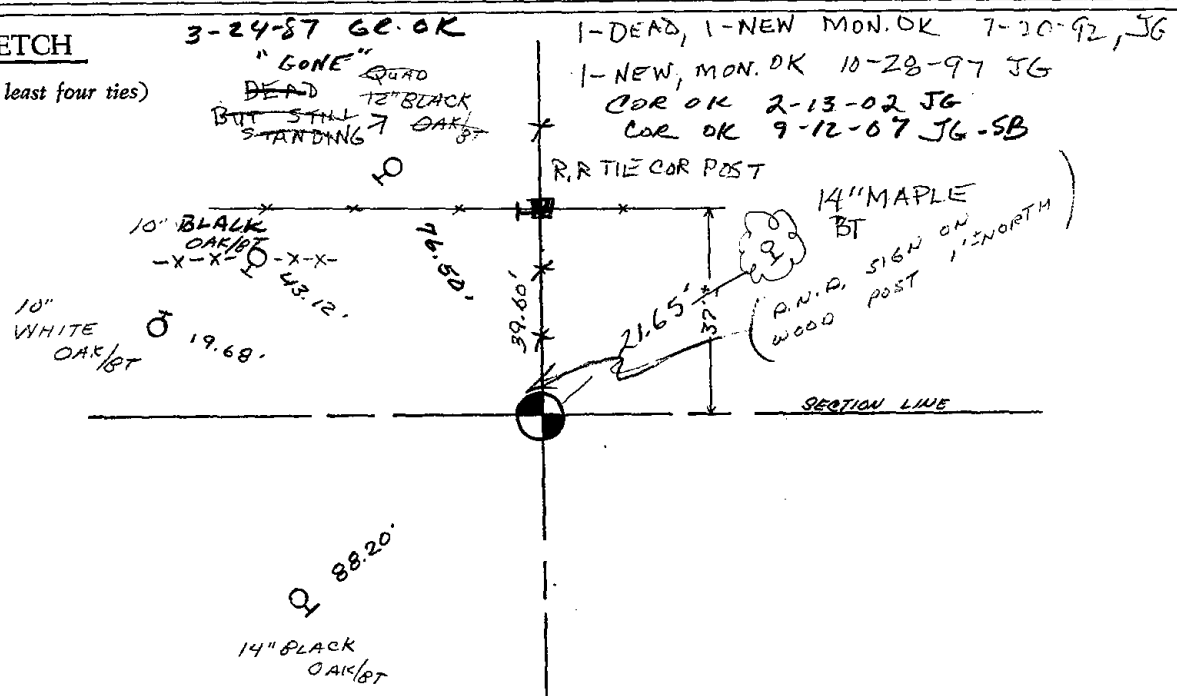 ETCH
least four ties)
3-24-87 GR. OK
"GONE"
DEAD
BUT STILL
STANDING
QUAD
12" BLACK
OAK/BT
1-DEAD, 1-NEW MON. OK 7-20-92, JG
1-NEW, MON. OK 10-28-97 JG
COR OK 2-13-02 JG
COR OK 9-12-07 JG-SB
R.R TIE COR POST
14" MAPLE
BT
SIGN ON
WOOD POST 1'± NORTH
10" BLACK
OAK/BT
43.12'
76.50'
39.60'
21.65'
37'±
10"
WHITE
OAK/BT
19.68'
SECTION LINE
88.20'
14" BLACK
OAK/BT